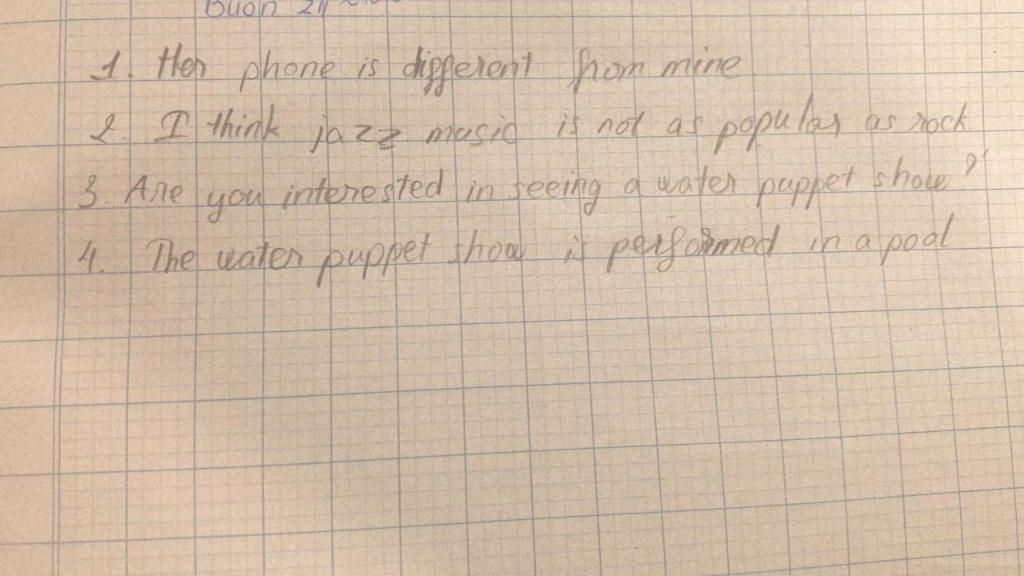 1. Her phone is different from mine
2. I think jazz music is not as popular as rock
3. Are you interested in seeing a water puppet show?
4. The water puppet show is performed in a pool